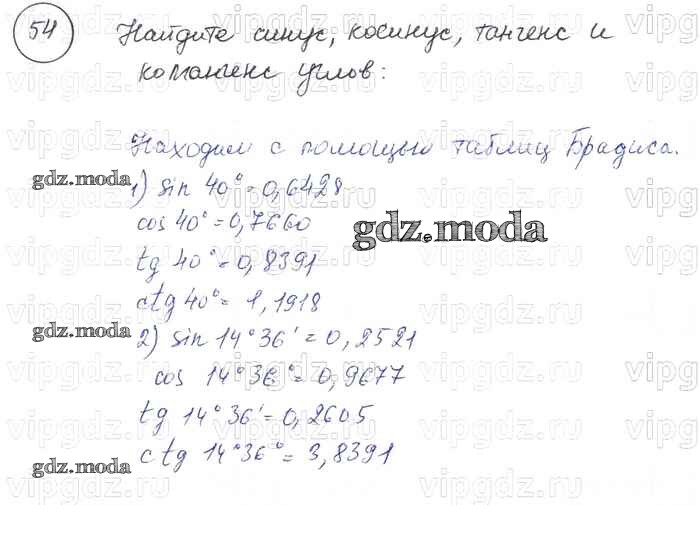 54 Найдите синус, косинус, тангенс и
котангенс углов:
Находим с помощью таблиц Брадиса.
gdz.moda
1) sin 40° = 0,6428
cos 40° = 0,7660
gdz.moda
tg 40° = 0,8391
ctg 40° = 1,1918
gdz.moda
2) sin 14°36' = 0,2521
cos 14°36° = 0,9677
tg 14°36' = 0,2605
ctg 14°36° = 3,8391
gdz.moda
vipgdz.ru